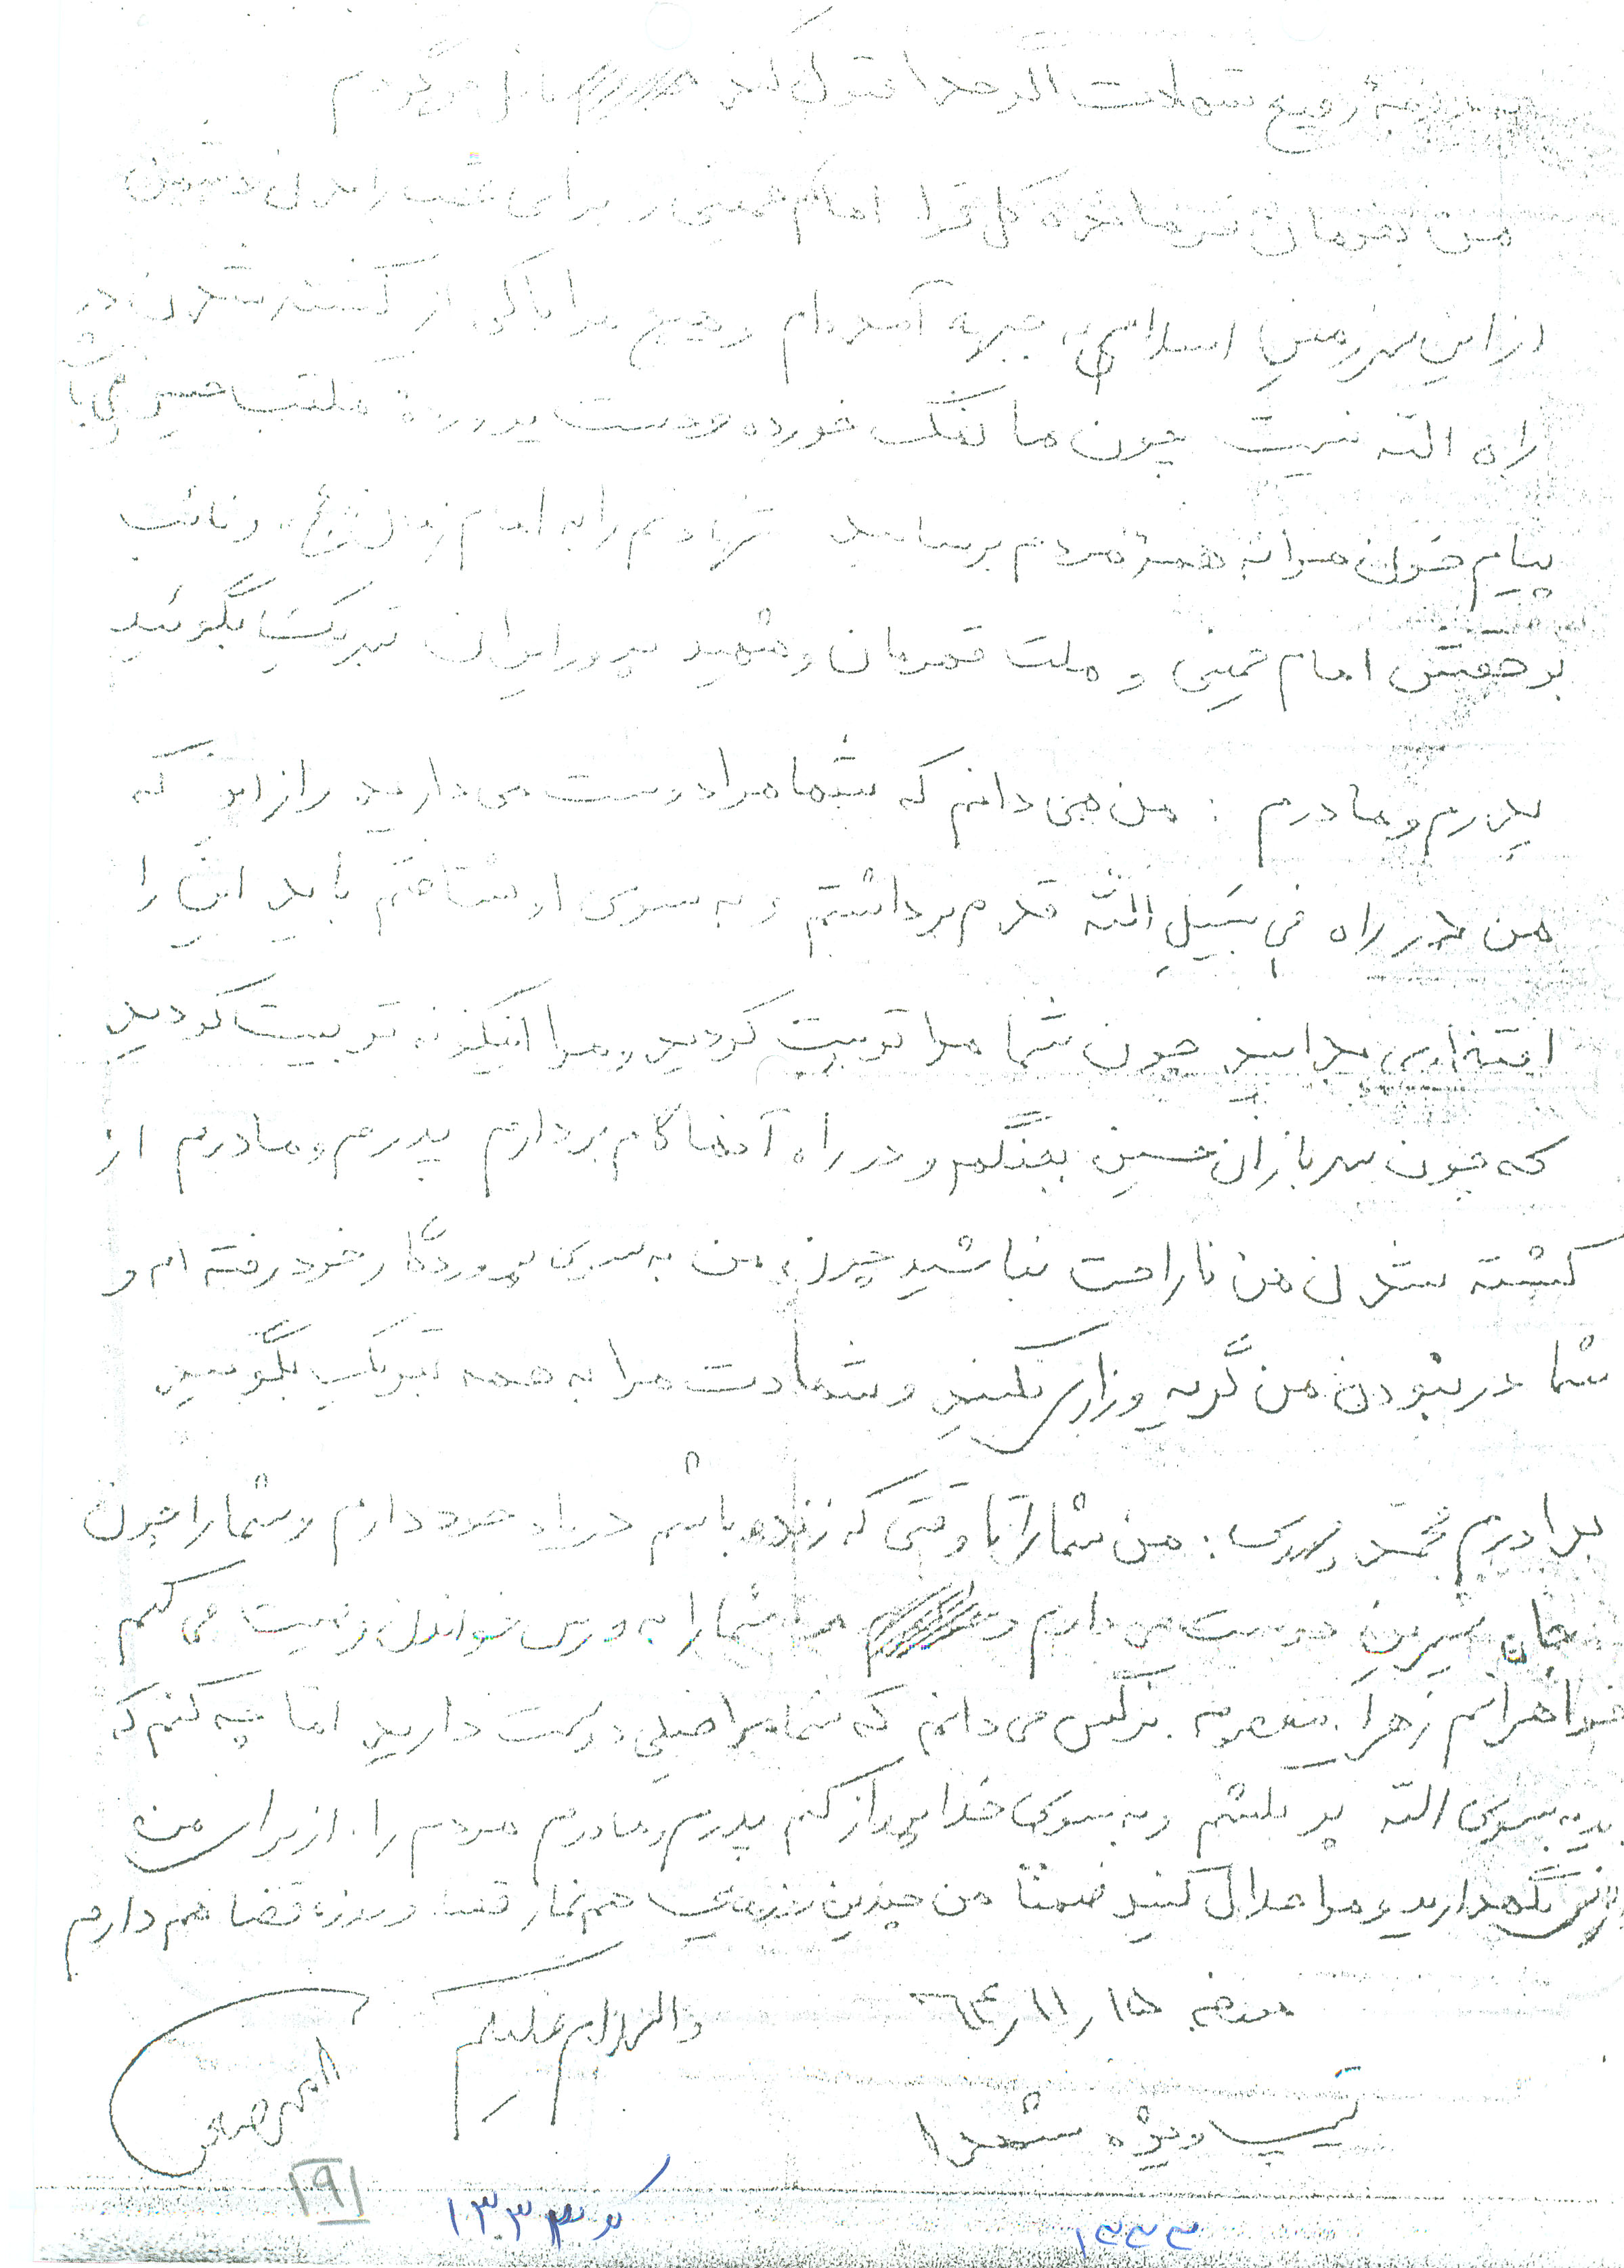 رفیع شهادت اگر خدا قبول کند نائل می گردم
من بفرمان فرمانده کل قوا امام خمینی و برای عقب راندن دشمن
از این سرزمین اسلامی به جبهه آمده ام و هیچ مرا باکی از کشته شدن در
راه الله نیست چون ما نمک خورده و دست پرورده مکتب حسین می باشیم
پیام خون مرا به همه مردم برسانید شهادتم را به امام زمان (عج) و نائب
بر حقش امام خمینی و ملت قهرمان و شهید پرور ایران تبریک بگوئید
پدرم و مادرم : من می دانم که شما مرا دوست می دارید و از این که
من در راه فی سَبیلِ الله قدم برداشتم و به سوی او شتافتم باید این را
افتخاری بدانید چون شما مرا تربیت کردید و مرا اینگونه تربیت کردید
که چون سربازان حسین بجنگم و در راه آنها گام بردارم پدرم و مادرم از
کشته شدن من ناراحت نباشید چون من به سوی پروردگار خود رفته ام و
شما در نبودن من گریه و زاری نکنید و شهادت مرا به همه تبریک بگوئید
برادرم محمد مهدی : من شما را تا وقتی که زنده باشم در یاد خود دارم و شما را چون
جان شیرین دوست می دارم و شما را به درس خواندن وصیت می کنم
خواهرانم زهرا . معصومه . نرگس می دانم که شما مرا خیلی دوست دارید اما چه کنم که
باید به سوی الله پر بکشم و به سوی خدا پرواز کنم پدرم و مادرم مردم را از برای من
راضی نگهدارید و مرا حلال کنید ضمناً من چندین روزی هم نماز قضا و روزه قضا هم دارم
مورخه ۱۵ / ۱۱ / ۶۴ والسلام علیکم
تیپ ویژه شهدا
۱۹
۱۳۳۳۲
۱۳۳۳